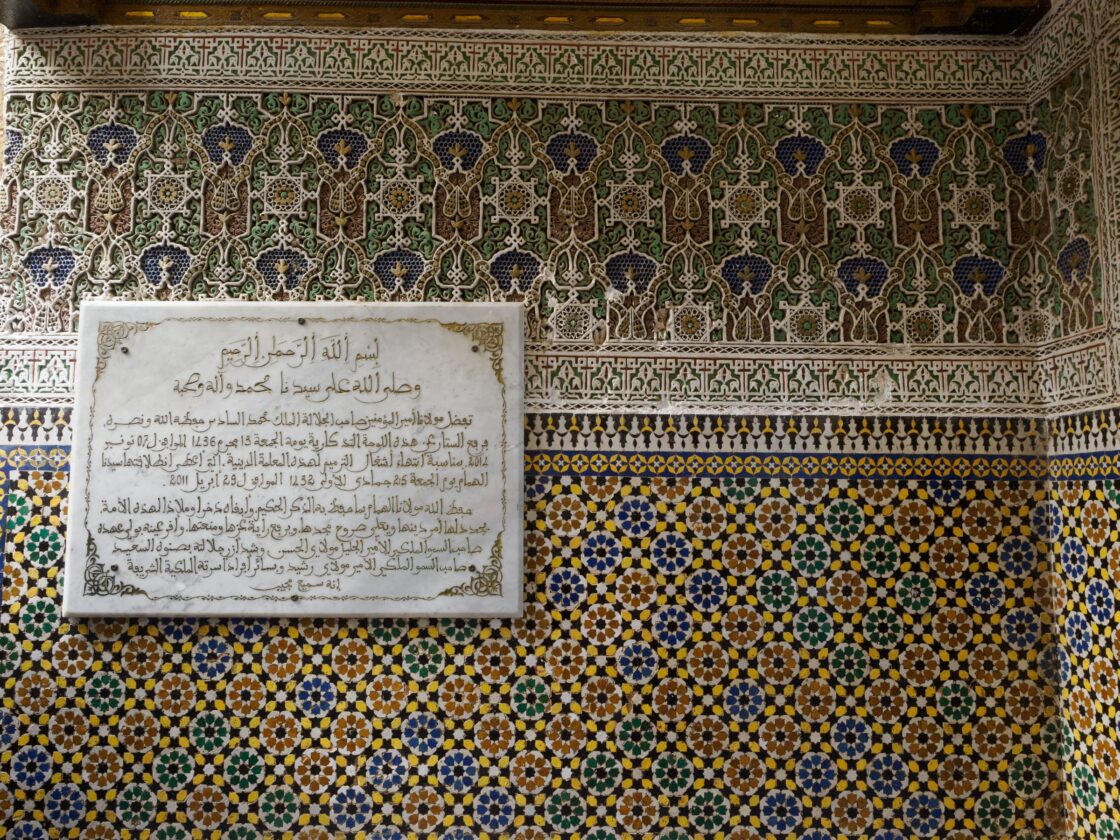 بسم الله الرحمن الرحيم
وصلى الله على سيدنا محمد وآله وصحبه
تفضل مولانا أمير المؤمنين صاحب الجلالة الملك محمد السادس حفظه الله ونصره،
برفع الستار عن هذه اللوحة التذكارية يومه الجمعة 13 محرم 1436 الموافق ل 07 نونبر
2014، بمناسبة انتهاء أشغال الترميم لهذه المعلمة الدينية، التي أعطى انطلاقتها سيدنا
الهمام يوم الجمعة 25 جمادى الأولى 1432 الموافق ل 29 أبريل 2011.
حفظ الله مولانا الهمام بما حفظ به الذكر الحكيم وأبقاه ذخرا وملاذا لهذه الأمة،
يجدد لها أمر دينها ويعلي صروح مجدها ويرفع راية عزها ومنعتها وأقر عينه بولي عهده
صاحب السمو الملكي الأمير الجليل مولاي الحسن، وشد أزر جلالته بصنوه السعيد
صاحب السمو الملكي الأمير مولاي رشيد وسائر أفراد أسرته الملكية الشريفة
إنه سميع مجيب